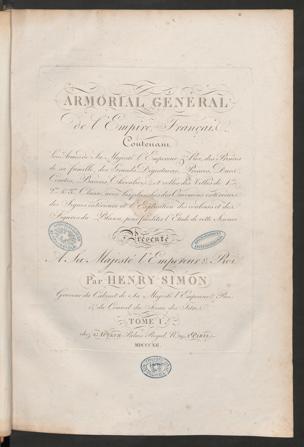 ARMORIAL GÉNÉRAL
de l'Empire Français
Contenant
Les Armes de Sa Majesté l'Empereur & Roi, des Princes
de sa famille, des Grands Dignitaires, Princes, Ducs,
Comtes, Barons, Chevaliers, et celles des Villes de 1.re
2.e & 3.e Classe, avec les planches des Ornemens extérieurs,
des Signes intérieurs et l'Explication des couleurs et des
Figures du Blason, pour faciliter l'Etude de cette Science
Présenté
A Sa Majesté l'Empereur & Roi,
Par HENRY SIMON
Graveur du Cabinet de Sa Majesté l'Empereur & Roi
& du Conseil du Sceau des Titres.
TOME I.
chez l'AUTEUR Palais Royal à PARIS
MDCCCXII.